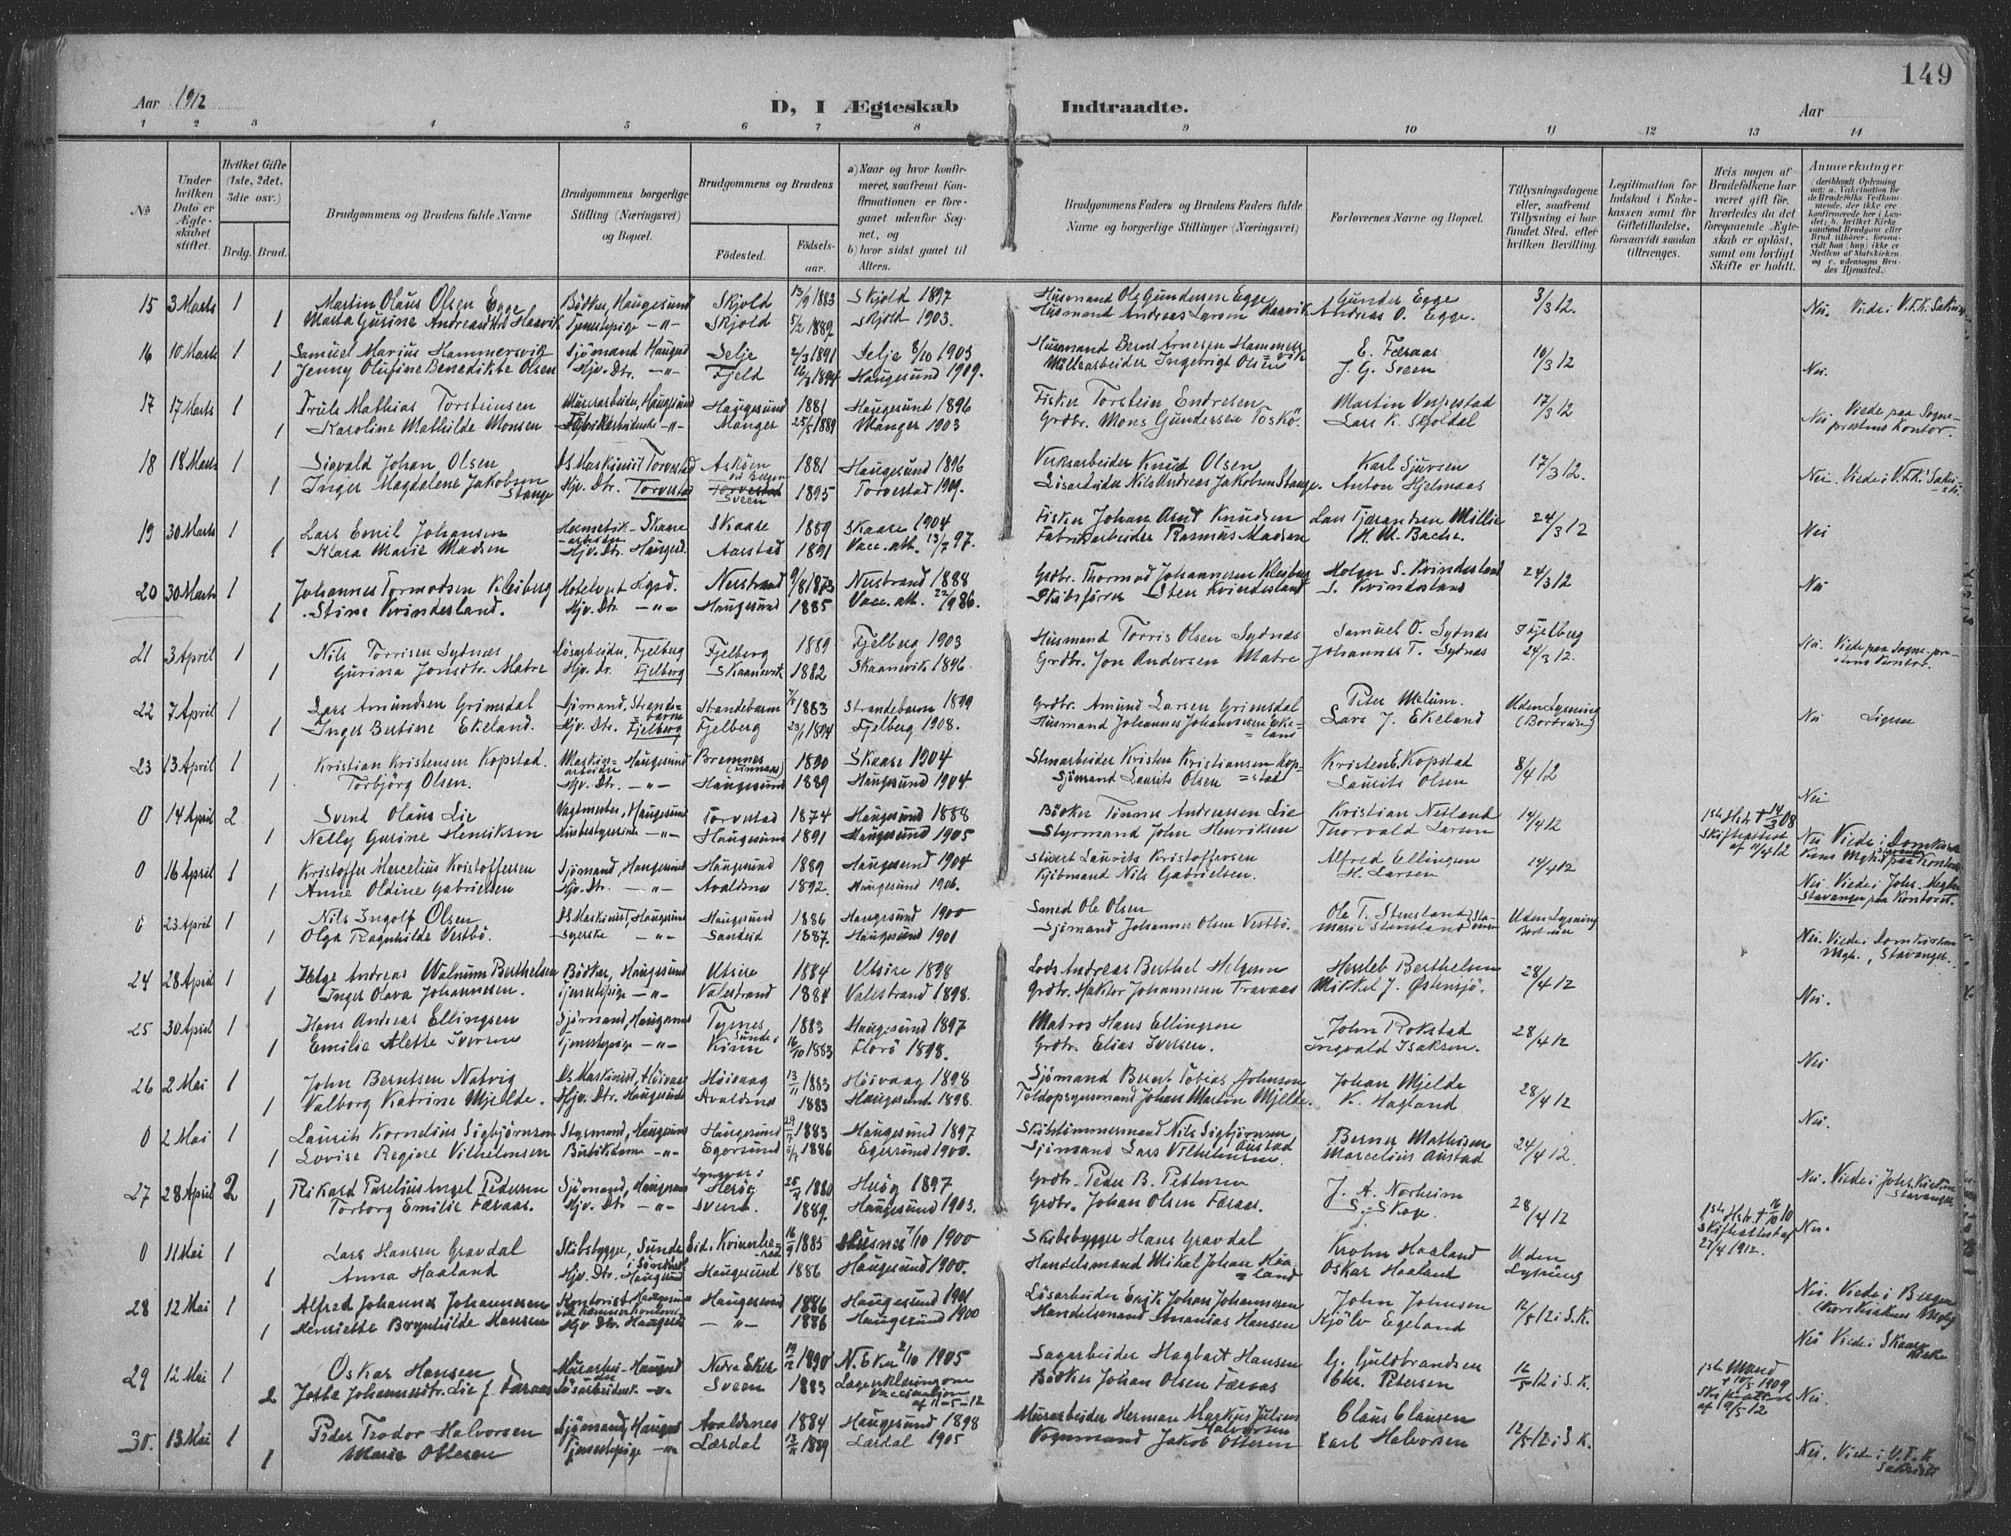 149
Aar 1912
D, I Ægteskab Indtraadte.
Aar
1 2 3 4 5 6 7 8 9 10 11 12 13 14
No
Under hvilken Dato er Ægteskabet stiftet.
Hvilket Gifte (1ste, 2det, 3die osv.)
Brdg. Brud.
Brudgommens og Brudens fulde Navne
Brudgommens borgerlige Stilling (Næringsvei) og Bopæl.
Brudgommens og Brudens
Fødested.
Fødselsaar.
a) Naar og hvor konfirmeret, saafremt Konfirmationen er foregaaet udenfor Sognet, og
b) hvor sidst gaaet til Alters.
Brudgommens Faders og Brudens Faders fulde Navne og borgerlige Stillinger (Næringsvei)
Forlovernes Navne og Bopæl.
Tillysningsdagene eller, saafremt Tillysning ei har fundet Sted, efter hvilken Bevilling.
Legitimation for Indskud i Enkekassen samt for Giftetilladelse, forsaavidt saadan tiltrænges.
Hvis nogen af Brudefolkene har været gift før, hvorledes da det foregaaende Ægteskab er opløst, samt om lovligt Skifte er holdt.
Anmerkninger
15 3 Marts 1 Martin Olaus Olsen Egge Bödker, Haugesund Skjold 13/9 1883 Skjold 1897 Husmand Ole Gundersen Egge Gunder Egge 3/3 12.
1 Marta Gurine Andreasdtr Haavik Tjenestepige -"- Skjold 5/2 1889 Skjold 1903. Husmand Andreas Larsen Haavik Andreas O. Egge. Nei. Viede i V.F.K. Sakristi
16 10 Marts 1 Samuel Marius Hammersvik Sjömand Haugesd Selje 2/3 1891 Selje 8/10 1905 Husmand Bernt Arnesen Hammersvik E. Færaas 10/3 12
1 Jenny Olufine Benedikte Olsen Hjv. Dtr. -"- Fjeld 1894 Haugesund 1909. Ingebrigt Olsen J. G. Sveen Nei.
17 17 Marts 1 Truls Mathias Torsteinsen Murerarbeider, Haugesund Haugesund 1881 Haugesund 1896 Fisker Torstein Endresen Martin Velpestad 17/3 12
1 Karoline Mathilde Monsen Fabrikarbeiderske -"- Manger 25/5 1889 Manger 1903 Grdbr. Mons Gundersen Toskö. Lars K. Skjoldal Nei Viede paa Sogneprestens Kontor.
18 18 Marts 1 Sigvald Johan Olsen DS Maskinist Torvestad Asköen ved Bergen 1881 Haugesund 1896 Verksarbeider Knud Olsen Karl Sjursen 17/3 12.
1 Inger Magdalene Jakobsen Stange Hjv. Dtr. Torvestad Sveen 1895 Torvestad 1909. Lösarbeider Nils Andreas Jakobsen Stange. Anton Hjelmaas Nei. Viede i V.F.K.s Sakristi
19 30 Marts 1 Lars Emil Johansen Hermetikarbeider Skaare Skaare 1889 Skaare 1904 Fisker Johan Arnt Knudsen Lars Tjerandsen Millie 24/3 12
1 Klara Marie Madsen Hjv. Dtr. Haugesd. Aarstad 1891 Vacc. att. 13/7 97. Fabrikarbeider Rasmus Madsen H. M. Bache. Nei
20 30 Marts 1 Johannes Tormodsen Kleiberg Hotelvert Egsd. Nerstrand 9/8 1873 Nerstrand 1888 Grdbr. Thormod Johannesen Kleiberg Helge S. Kvindesland 24/3 12
1 Stine Kvindesland. Hjv. Dtr. -"- Haugesund 1885 Vacc. att. 22/9 86. Skibsförer Sten Kvindesland S. Kvindesland Nei
21 3 April 1 Nils Torrisen Sydnæs Lösarbeider, Fjelberg Fjelberg 1889 Fjelberg 1903 Husmand Torris Olsen Sydnæs Samuel O. Sydnæs Fjelberg
1 Gurina Jonsdtr. Matre Hjv. dr. Fjelberg Skaanevik 1882 Skaanevik 1896 Grdbr. Jon Andersen Matre Johannes T. Sydnæs 24/3 12. Nei. Viede paa Sogneprestens Kontor.
22 7 April 1 Lars Amundsen Grimsdal Sjömand, Strandebarm Strandebarm 1883 Strandebarm 1899 Grdbr. Amund Larsen Grimsdal Peter Melum. Uden Lysning
1 Inger Bertine Ekeland. Hjv. Dtr. Fjelberg Fjelberg 23/1 1894 Fjelberg 1908. Husmand Johannes Johannesen Ekeland Lars J. Ekeland Nei Ligesaa
23 13 April 1 Kristian Kristensen Kopstad. Maskinarbeider Haugesund Bremnes (Finnaas) 1890 Skaare 1904 Stenarbeider Kristen Kristiansen Kopstad Kristen E. Kopstad 8/4 12
1 Torbjörg Olsen. Hjv. Dtr. -"- Haugesund 1889 Haugesund 1904. Sjömand Laurits Olsen Laurits Olsen Nei
0 14 April 2 Svend Olaus Lie Vagtmester, Haugesund Torvestad 1874 Haugesund 1888 Bödker Tönnes Andreassen Lie Kristian Netland 14/4 12 1ste Hstr + 14/3 08
1 Nelly Gurine Henriksen Husbestyrerinde -"- Haugesund 1891 Haugesund 1905 Styrmand John Henriksen Thorvald Larsen Skifteattest af 11/4 12 Nei Viede i Domkirkens Mgh. Stavanger paa Kontoret
0 16 April 1 Kristoffer Marcelius Kristoffersen Sjömand, Haugesund Haugesund 1889 Haugesund 1904 Stuert Laurits Kristoffersen Alfred Ellingsen 14/4 12
1 Anne Oldine Gabrielsen Hjv. Dtr. -"- Avaldsnes 1892. Haugesund 1906. Kjöbmand Nils Gabrielsen. H. Larsen Nei Viede i Johs. Megh. Stavanger paa Kontoret.
0 23 April 1 Nils Ingolf Olsen DS Maskinist, Haugesund Haugesund 1886 Haugesund 1900 Smed Ole Olsen Ole T. Stensland Uden Lysning
1 Olga Ragnhilde Vestbö. Syerske -"- Sandeid 1887. Haugesund 1901 Sjömand Johannes Olsen Vestbö. Marie Stensland Nei. Viede i Domkirkens Mgh., Stavanger.
24 28 April 1 Helge Andreas Walnum Berthelsen Bödker, Haugesund Utsire 1884 Utsire 1898 Lods Andreas Berthel Helgesen Hersleb Berthelsen 28/4 12
1 Inger Olava Johannesen. Tjenestepige -"- Valestrand 1884 Valestrand 1898. Grdbr. Haktor Johannesen Travaas Mikkel J. Østensjö. Nei.
25 30 April 1 Hans Andreas Ellingsen Sjömand, Haugesund Tysnes 1883 Haugesund 1897 Matros Hans Ellingsen John Rokstad 28/4 12
1 Emilie Alette Iversen Tjenestepige -"- Kinn 16/10 1883 Florö 1898. Grdbr. Elias Iversen. Ingvald Isaksen. Nei
26 2 Mai 1 John Berntsen Natvig DS Maskinist, Höivaag Höivaag 13/11 1883 Höivaag 1898 Sjömand Bernt Tobias Johnsen Johan Mjelde 28/4 12
1 Valborg Katrine Mjelde. Hjv. Dtr. Haugesund Avaldsnes 1883 Haugesund 1898. Toldopsynsmand Johan Martin Mjelde. K. Hagland Nei.
0 2 Mai 1 Laurits Kornelius Sigbjörnsen Styrmand, Haugesund Haugesund 1883 Haugesund 1897 Skibstömmermand Nils Sigbjörnsen Berner Mathisen 24/4 12.
1 Lovise Regine Vilhelmsen Butikdame -"- Egersund 1886 Egersund 1900. Sjömand Lars Vilhelmsen Austad Marcelius Austad Nei. Viede i Johs. Kirken Stavanger
27 28 April 2 Rikard Parelius Angel Pedersen Sjömand, Haugesund Herög 25/9 1880 Herög 1897 Grdbr. Peder B. Pedersen J. A. Norheim 28/4 12
1 Torborg Emilie Færaas. Hjv. Dtr. -"- Sveen. 1889. Haugesund 1903. Grdbr. Johan Olsen Færaas. 1ste Hstr. + 16/10 10 Skifteattest af 27/4 1912. Nei.
0 11 Mai 1 Lars Hansen Gravdal Skibsbygger, Sunde i Söndhl. Eid i Kvinnherred 16/9 1885 Husnes 7/10 1900 Skibsbygger Hans Gravdal Krohn Haaland Uden Lysning
1 Anna Haaland Hjv. Dtr. Haugesund Haugesund 1886 Haugesund 1900. Handelsmand Mikal Johan Haaland Oskar Haaland Nei. Viede i Bergen (Korskirkens Mgh)
28 12 Mai 1 Alfred Johannes Johannesen Kontorist Haugesund Haugesund 1886 Haugesund 1901 Lösarbeider Erik Johan Johannesen John Johnsen 12/5 12 i S.K.
1 Henriette Brynhilde Hansen Hjv Dtr. Haugesd -"- 1886 Haugesund 1900 Handelsmand Ananias Hansen Kjölv Egeland Nei Viede i Skaare Kirke
29 12 Mai 1 Oskar Hansen Murarbeider Haugesd Nedre Eker 1890 N. Eker 2/10 1905 Sagarbeider Hagbart Hansen G. Guldbrandsen 12/5 12 i S.K. 1ste Mand + 10/5 1909
2 Jotta Johannesdtr. Lie f. Færaas Lösarbeidersk -"- Sveen 1883 Lægeerklæring om Vaccination af 11-5-12 Bödker Johan Olsen Færaas Chr. Petersen Skifteattest af 9/5 12 Nei.
30. 13 Mai 1 Peder Teodor Halvorsen Sjömand, Haugesd Avaldsnes 1884 Haugesund 1898 Murarbeider Herman Markus Julius Halvorsen Claus Clausen 12/5 12 i S.K.
1 Marie Ottesen Tjenestepige -"- Lærdal 13/11 1889 Lærdal 1905 Vognmand Jakob Ottesen Karl Halvorsen Nei. Viede i V.F.K. Sakristi